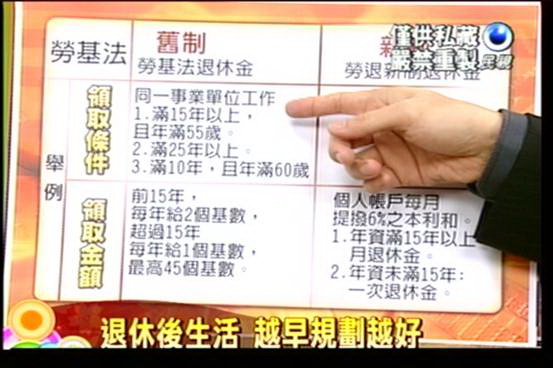 僅供私藏
嚴禁重製
民視
勞基法
舊制
勞基法退休金
新
勞退新制退休金
舉例
領取條件
同一事業單位工作
1.滿15年以上，
且年滿55歲。
2.滿25年以上。
3.滿10年，且年滿60歲
領取金額
前15年，
每年給2個基數，
超過15年
每年給1個基數，
最高45個基數。
個人帳戶每月
提撥6%之本利和。
1.年資滿15年以上
月退休金。
2.年資未滿15年：
一次退休金。
退休後生活 越早規劃越好